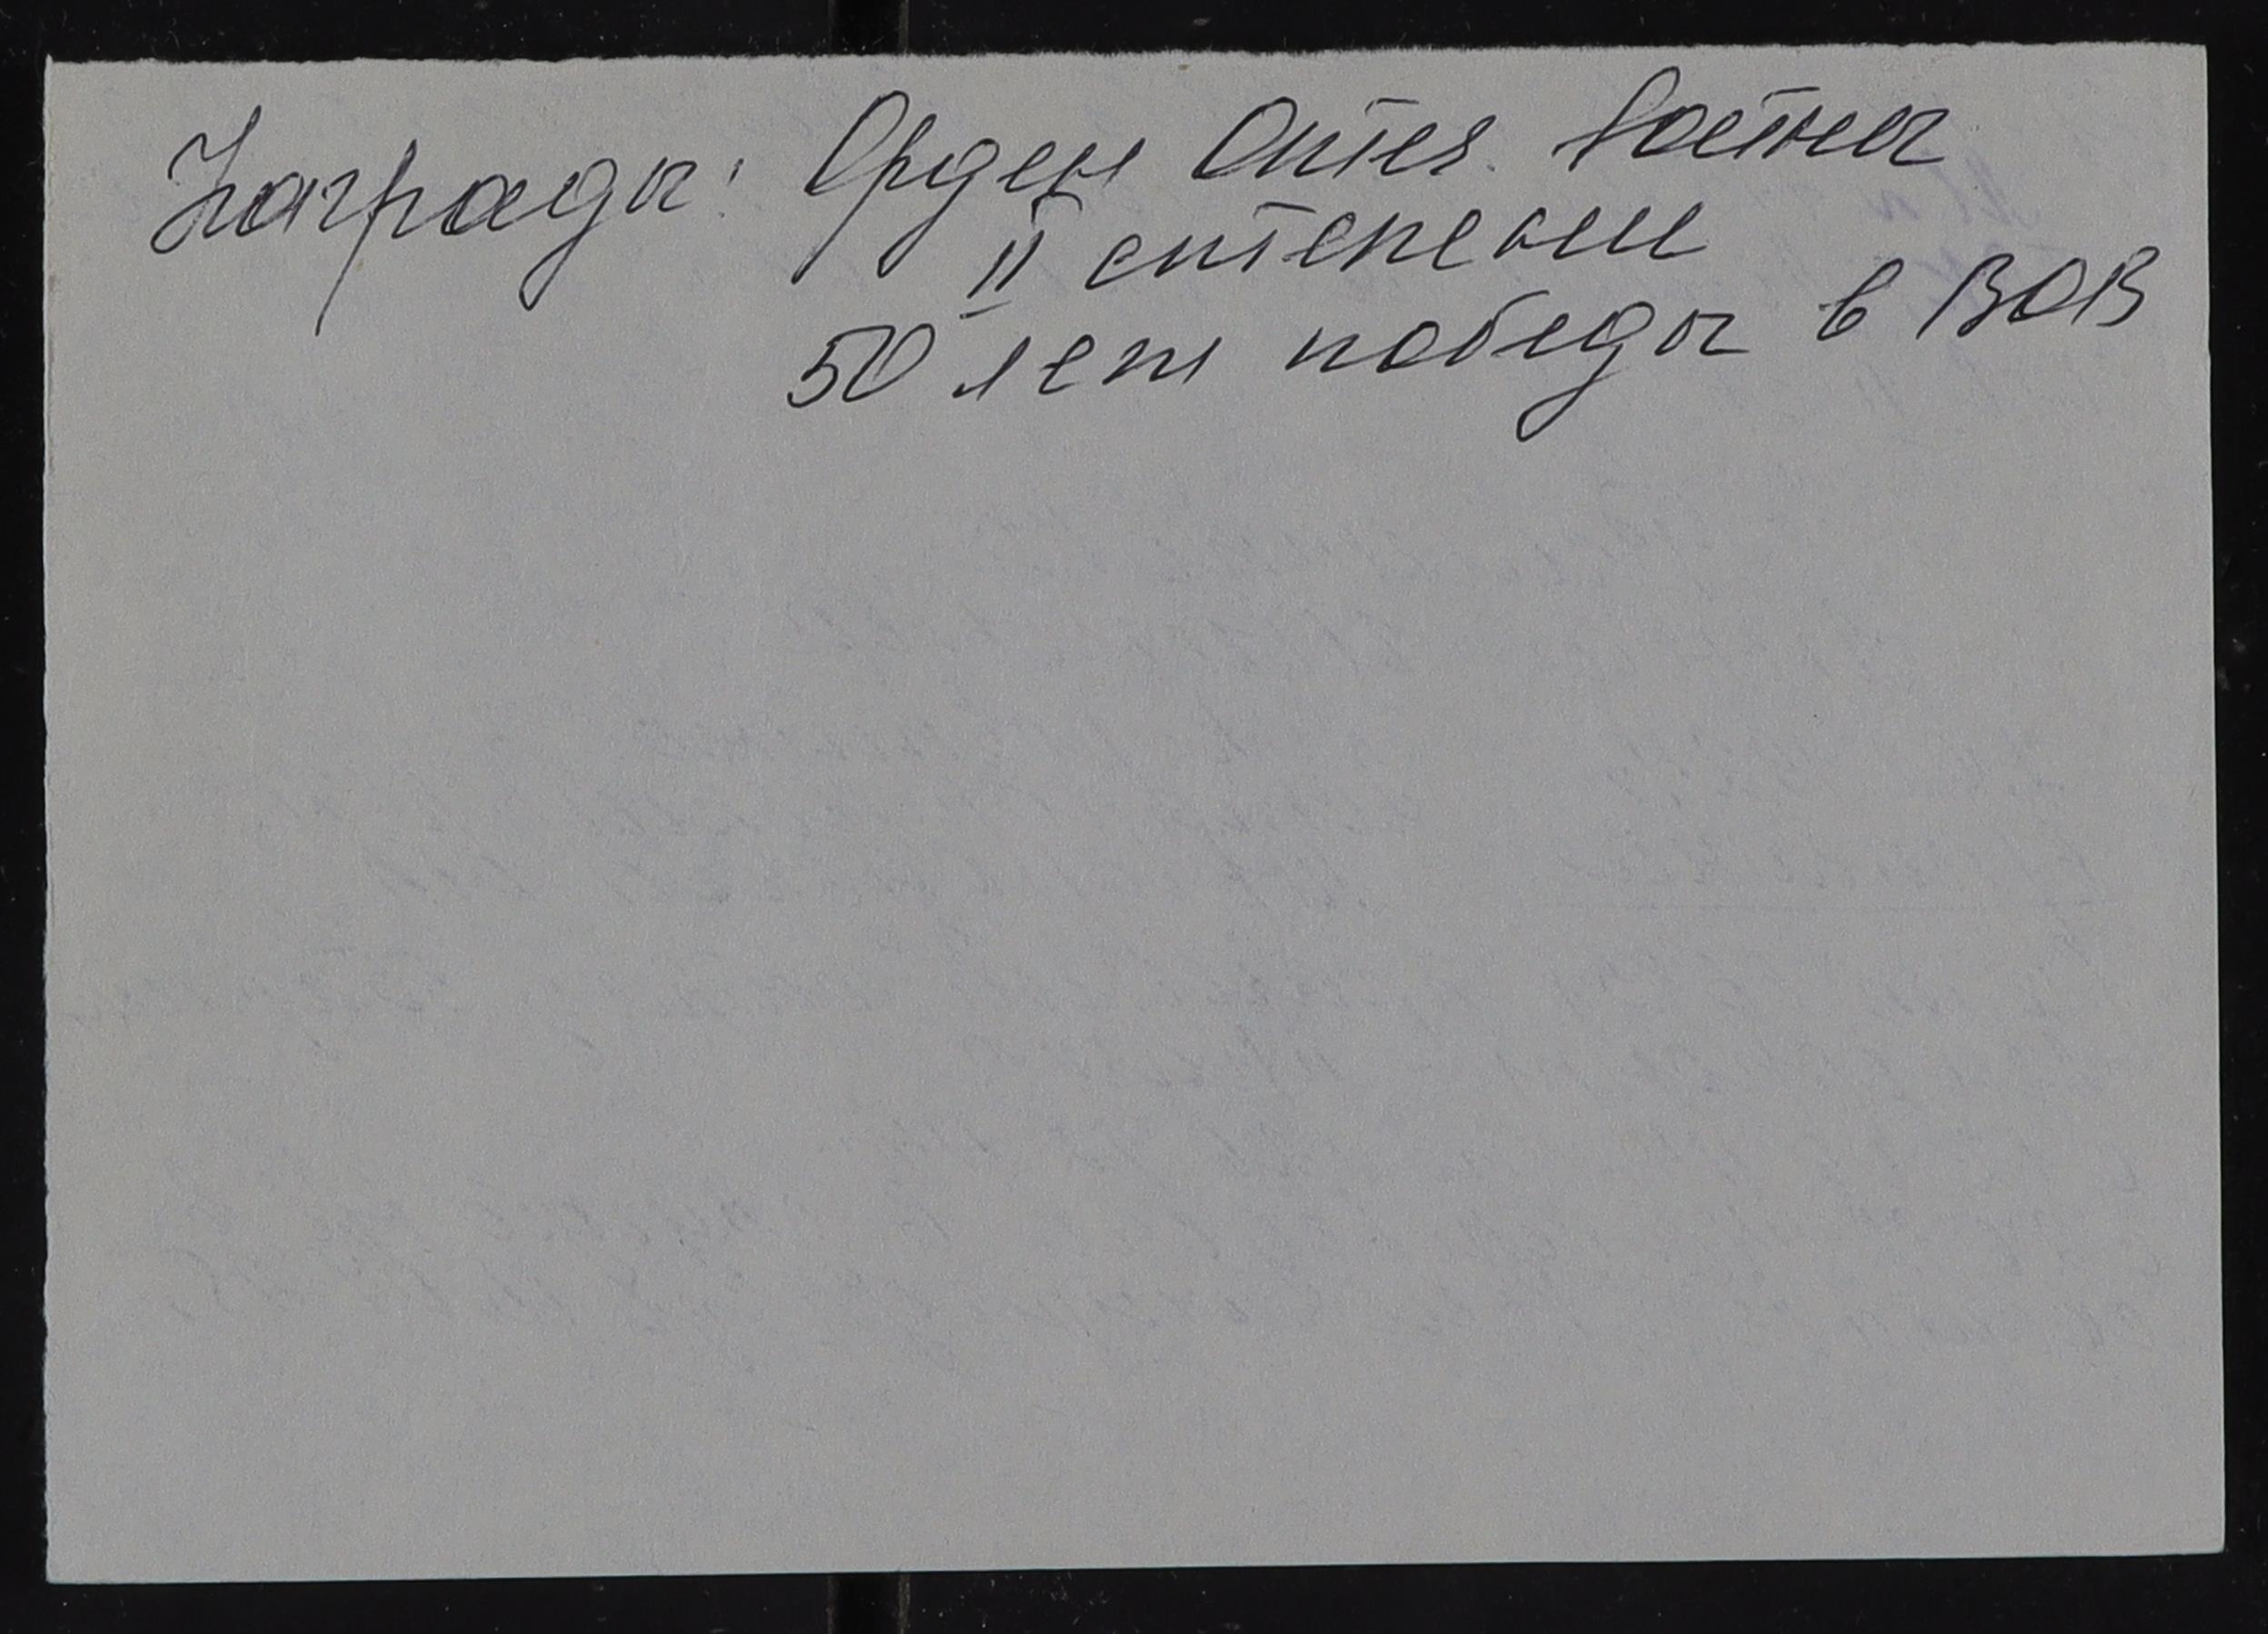 Награды: Орден Отеч. войны
II степени
50 лет победы в ВОВ